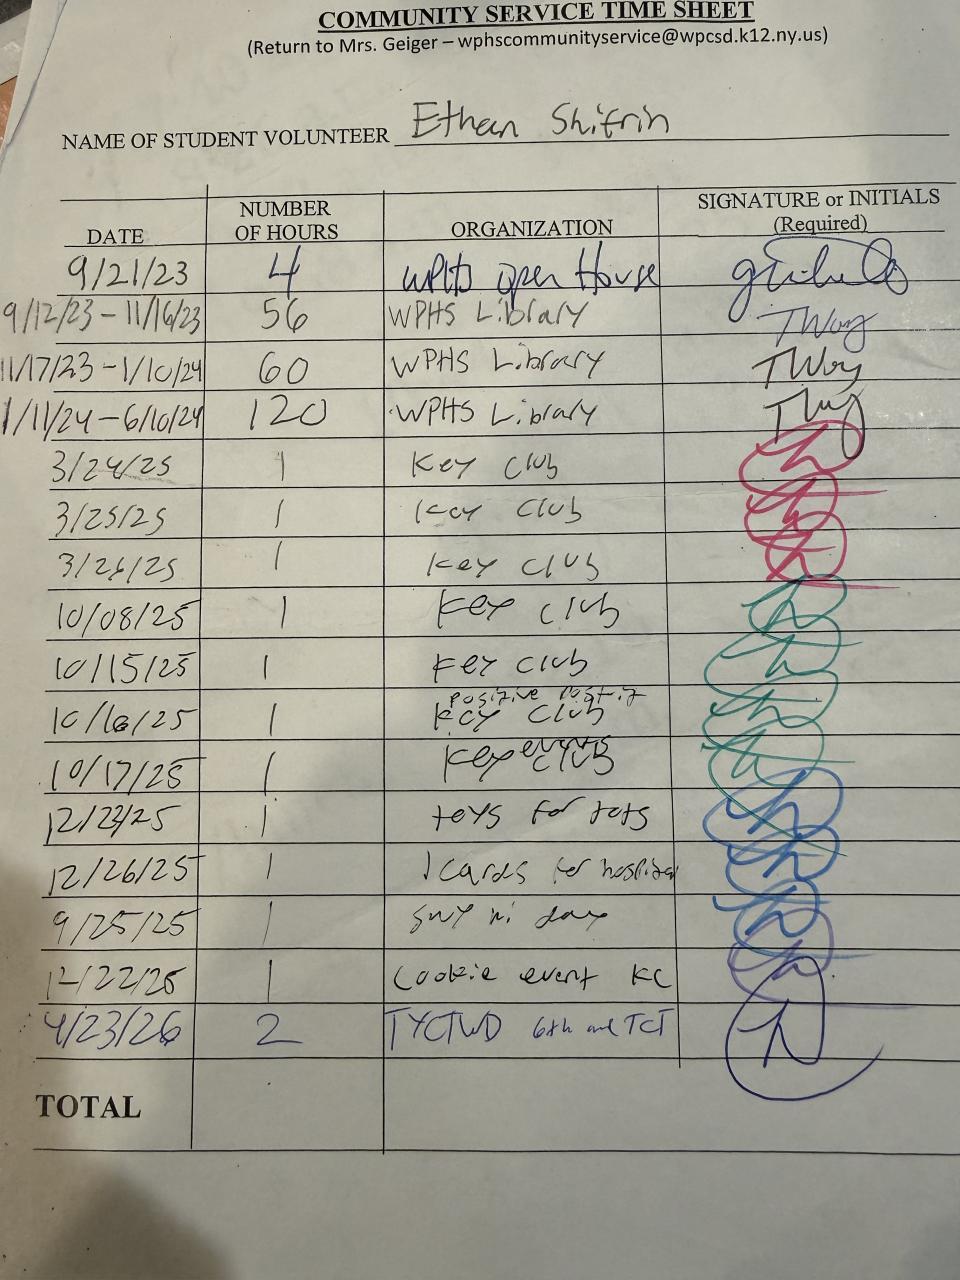 COMMUNITY SERVICE TIME SHEET
(Return to Mrs. Geiger – wphscommunityservice@wpcsd.k12.ny.us)
NAME OF STUDENT VOLUNTEER Ethan Shifrin
DATE NUMBER OF HOURS ORGANIZATION SIGNATURE or INITIALS (Required)
9/21/23 4 WPHS open House
9/12/23 - 11/16/23 56 WPHS Library TWoy
11/17/23 - 1/10/24 60 WPHS Library TWoy
1/11/24 - 6/10/24 120 WPHS Library
3/24/25 1 Key Club
3/25/25 1 Key Club
3/26/25 1 Key Club
10/08/25 1 Key Club
10/15/25 1 Key Club
positive postit
10/16/25 1 Key Club
10/17/25 1 Key Club events
12/23/25 1 toys for tots
12/26/25 1 cards for hospital
9/25/25 1 day
12/22/25 1 Cookie event KC
4/23/26 2 TYCTWD 6th and TCT
TOTAL